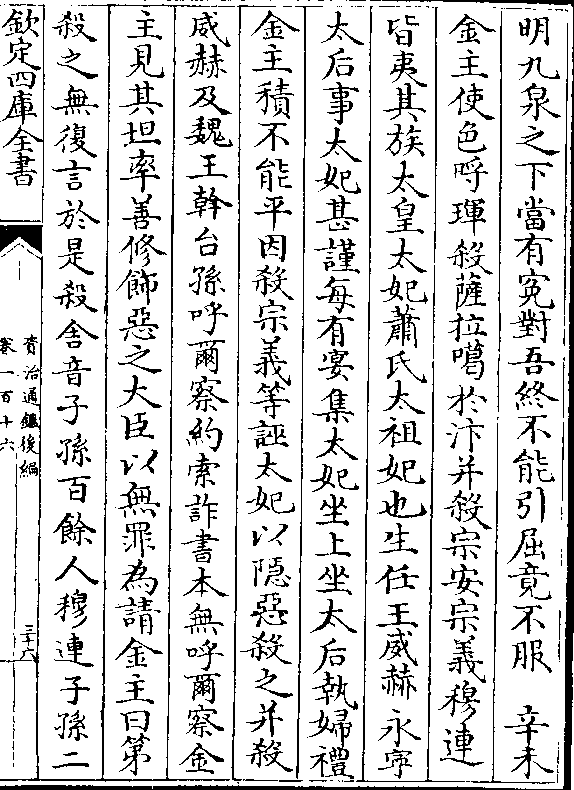 明九泉之下當有冤對吾終不能引屈竟不服　辛未
金主使色呼琿殺薩拉噶於汴并殺宗安宗義穆連
皆夷其族太皇太妃蕭氏太祖妃也生任王威赫永寧
太后事太妃甚謹每有宴集太妃坐上坐太后執婦禮
金主積不能平因殺宗義等誣太妃以隠惡殺之并殺
威赫及魏王幹台孫呼爾察約索詐書本無呼爾察金
主見其坦率善修飾惡之大臣以無罪為請金主曰第
殺之無復言於是殺舍音子孫百餘人穆連子孫二
欽定四庫全書
資治通鑑後編
卷一百十六
三十六